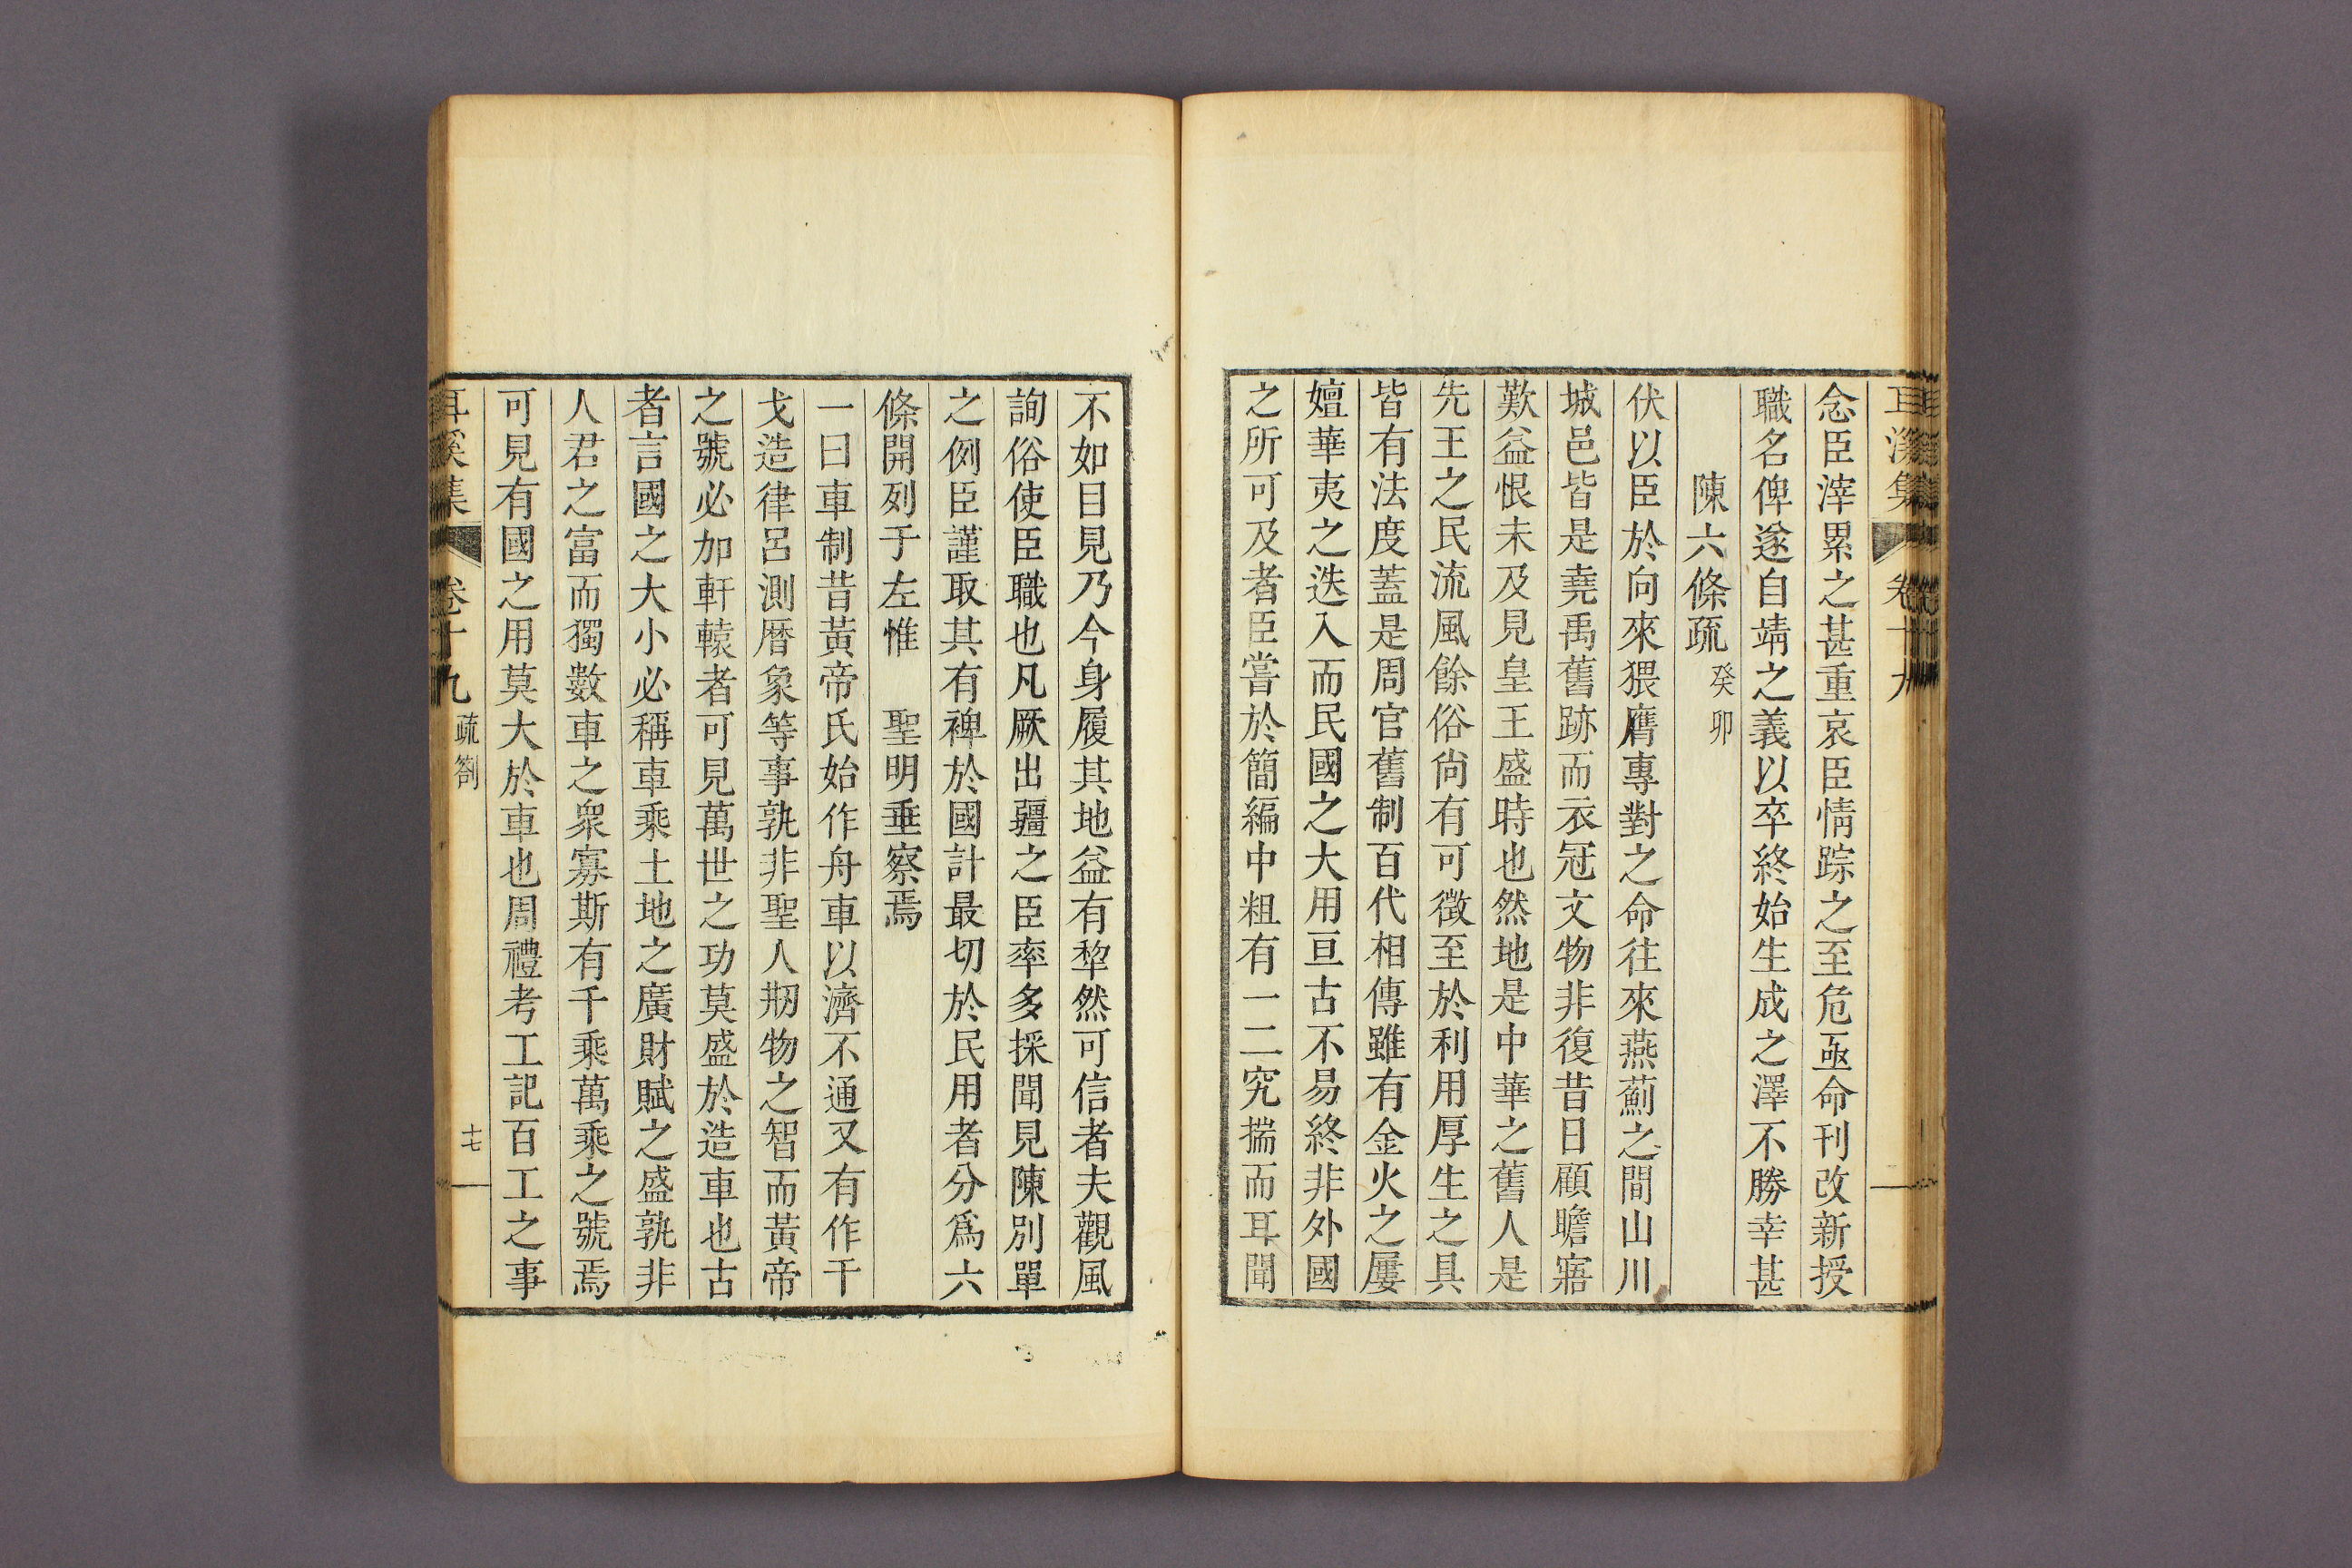 耳溪集 卷十九
念臣滓累之甚重哀臣情踪之至危亟命刊改新授
職名俾遂自靖之義以卒終始生成之澤不勝幸甚
陳六條疏 癸卯
伏以臣於向來猥膺專對之命往來燕薊之間山川
城邑皆是堯禹舊跡而衣冠文物非復昔日顧瞻寤
歎益恨未及見皇王盛時也然地是中華之舊人是
先王之民流風餘俗尙有可徵至於利用厚生之具
皆有法度蓋是周官舊制百代相傳雖有金火之屢
嬗華夷之迭入而民國之大用亘古不易終非外國
之所可及者臣嘗於簡編中粗有一二究揣而耳聞
不如目見乃今身履其地益有犂然可信者夫觀風
詢俗使臣職也凡厥出疆之臣率多採聞見陳別單
之例臣謹取其有裨於國計最切於民用者分爲六
條開列于左惟 聖明垂察焉
一曰車制昔黃帝氏始作舟車以濟不通又有作干
戈造律呂測曆象等事孰非聖人刱物之智而黃帝
之號必加軒轅者可見萬世之功莫盛於造車也古
者言國之大小必稱車乘土地之廣財賦之盛孰非
人君之富而獨數車之衆寡斯有千乘萬乘之號焉
可見有國之用莫大於車也周禮考工記百工之事
耳溪集 卷十九 疏劄 十七